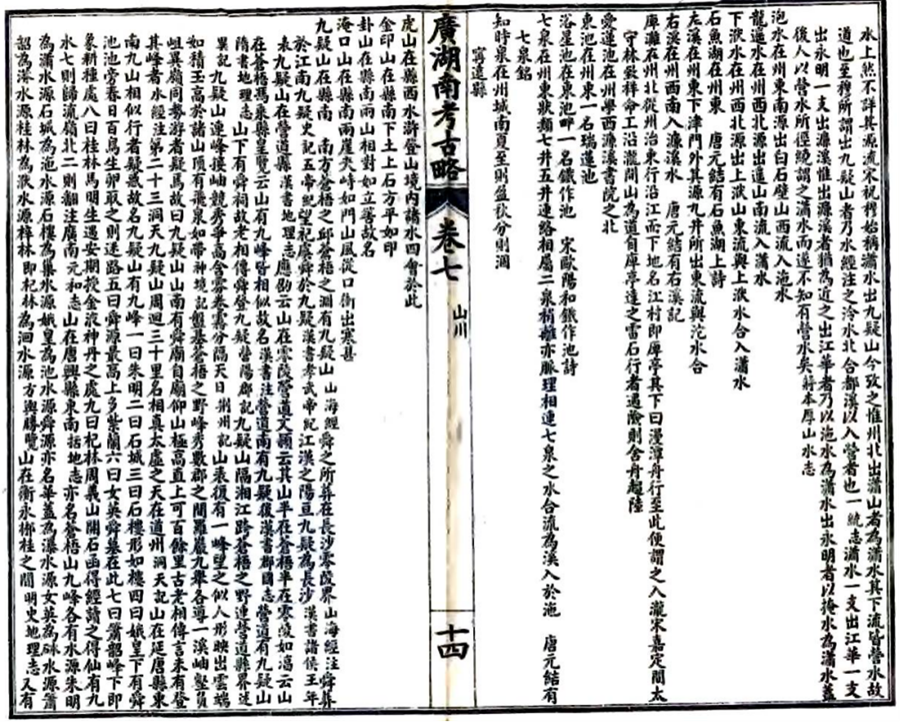 水上然不詳其源流宋祝穆始稱瀟水出九疑山今攷之惟州北出瀟山者為瀟水其下流皆營水故
道也至穆所謂出九疑山者乃水經注之泠水北合都溪以入營者也一統志瀟水一支出江華一支
出永明一支出濂溪惟出濂溪者猶為近之出江華者乃以沲水為瀟水出永明者以掩水為瀟水蓋
後人以營水所徑繞謂之瀟水而遂不知有營水矣
泡水在州東南源出白石壁山西流入沲水
龍遥水在州西北源出遥山南流入瀟水
下洑水在州西北源出上洑山東流與上洑水合入瀟水
石魚湖在州東 唐元結有石魚湖上詩
左溪在州東下津門外其源九井所出東流與沲水合
右溪在州西南入濂溪水 唐元結有右溪記
庳灘在州北從州治東行沿江而下地名江村即庳亭其下曰漫潭舟行至此便謂之入瀧宋嘉定間太
守林致祥命工沿瀧間山為道自庳亭達之雷石行者遇險則舍舟趨陸
愛蓮池在州學西濂溪書院之北
東池在州東一名瑞蓮池
浴星池在東池畔一名鐵作池 宋歐陽和鐵作池詩
七泉在州東狀類七井五井連絡相屬二泉稍離亦脈理相連七泉之水合流為溪入於沲 唐元結有
七泉銘
知時泉在州城南夏至則盈秋分則涸
寧遠縣
廣湖南考古略
卷七
山川
十四
虎山在縣西水滸登山境內諸水四會於此
金印山在縣南下土上石方平如印
卦山在縣南兩山相對如立筶故名
淹口山在縣南兩崖夾峙如門山風從口衝出寒甚
九疑山在縣南 南方蒼梧之邱蒼梧之淵有九疑山 山海經舜之所葬在長沙零陵界山海經注舜葬
於江南九疑史記五帝紀望祀虞舜於九疑漢書孝武帝紀江漢之陽亘九疑為長沙 漢書諸侯王年
表九疑山在營道縣 漢書地理志應劭云山在零陵營道文穎云其山半在蒼梧半在零陵如淳云山
在蒼梧馮乘縣皇覽云山有九峰皆相似故名漢書注營道南有九疑後漢書郡國志營道有九疑山
隋書地理志 山下有舜祠故老相傳舜登九疑 營陽郡記九疑山隔湘江跨蒼梧之野連營道縣界
異記九疑山連峰接岫競秀爭高含霞卷霧分隔天日 荊州記山表復有一峰望之似人形映出雲端
如積玉高於諸山頂有飛泉如帶神境記盤基蒼梧之野峰秀數郡之間羅巖九舉各導一溪岫壑負
岨異嶺同勢游者疑焉故曰九疑山山南有舜廟自廟仰山極高直上可百餘里古老相傳言未有登
其峰者水經注第二十三洞天九疑山山周迴三十里名相真太虛之天在道州 洞天記山在延唐縣東
南九山相似行者疑惑故名九疑山有九峰一曰朱明二曰石城三曰石樓形如樓四曰娥皇下有舜
池池旁春日百鳥生卵取之則迷路五曰舜源最高上多紫蘭六曰女英舜墓在此七曰簫韶峰下即
象耕種處八曰桂林馬明生遇安期授金液神丹之處九曰杞林周義山開石函得經讀之得仙有九
水七則歸流嶺北二則翻注廣南元和志山在唐興縣東南括地志亦名蒼梧山九峰各有水源朱明
為瀟水源石城為沲水源石樓為巢水源娥皇為池水源舜源亦名華蓋為瀑水源女英為砯水源簫
韶為濬水源桂林為洑水源梓林即杞林為洄水源方輿勝覽山在衡永郴桂之間明史地理志又有